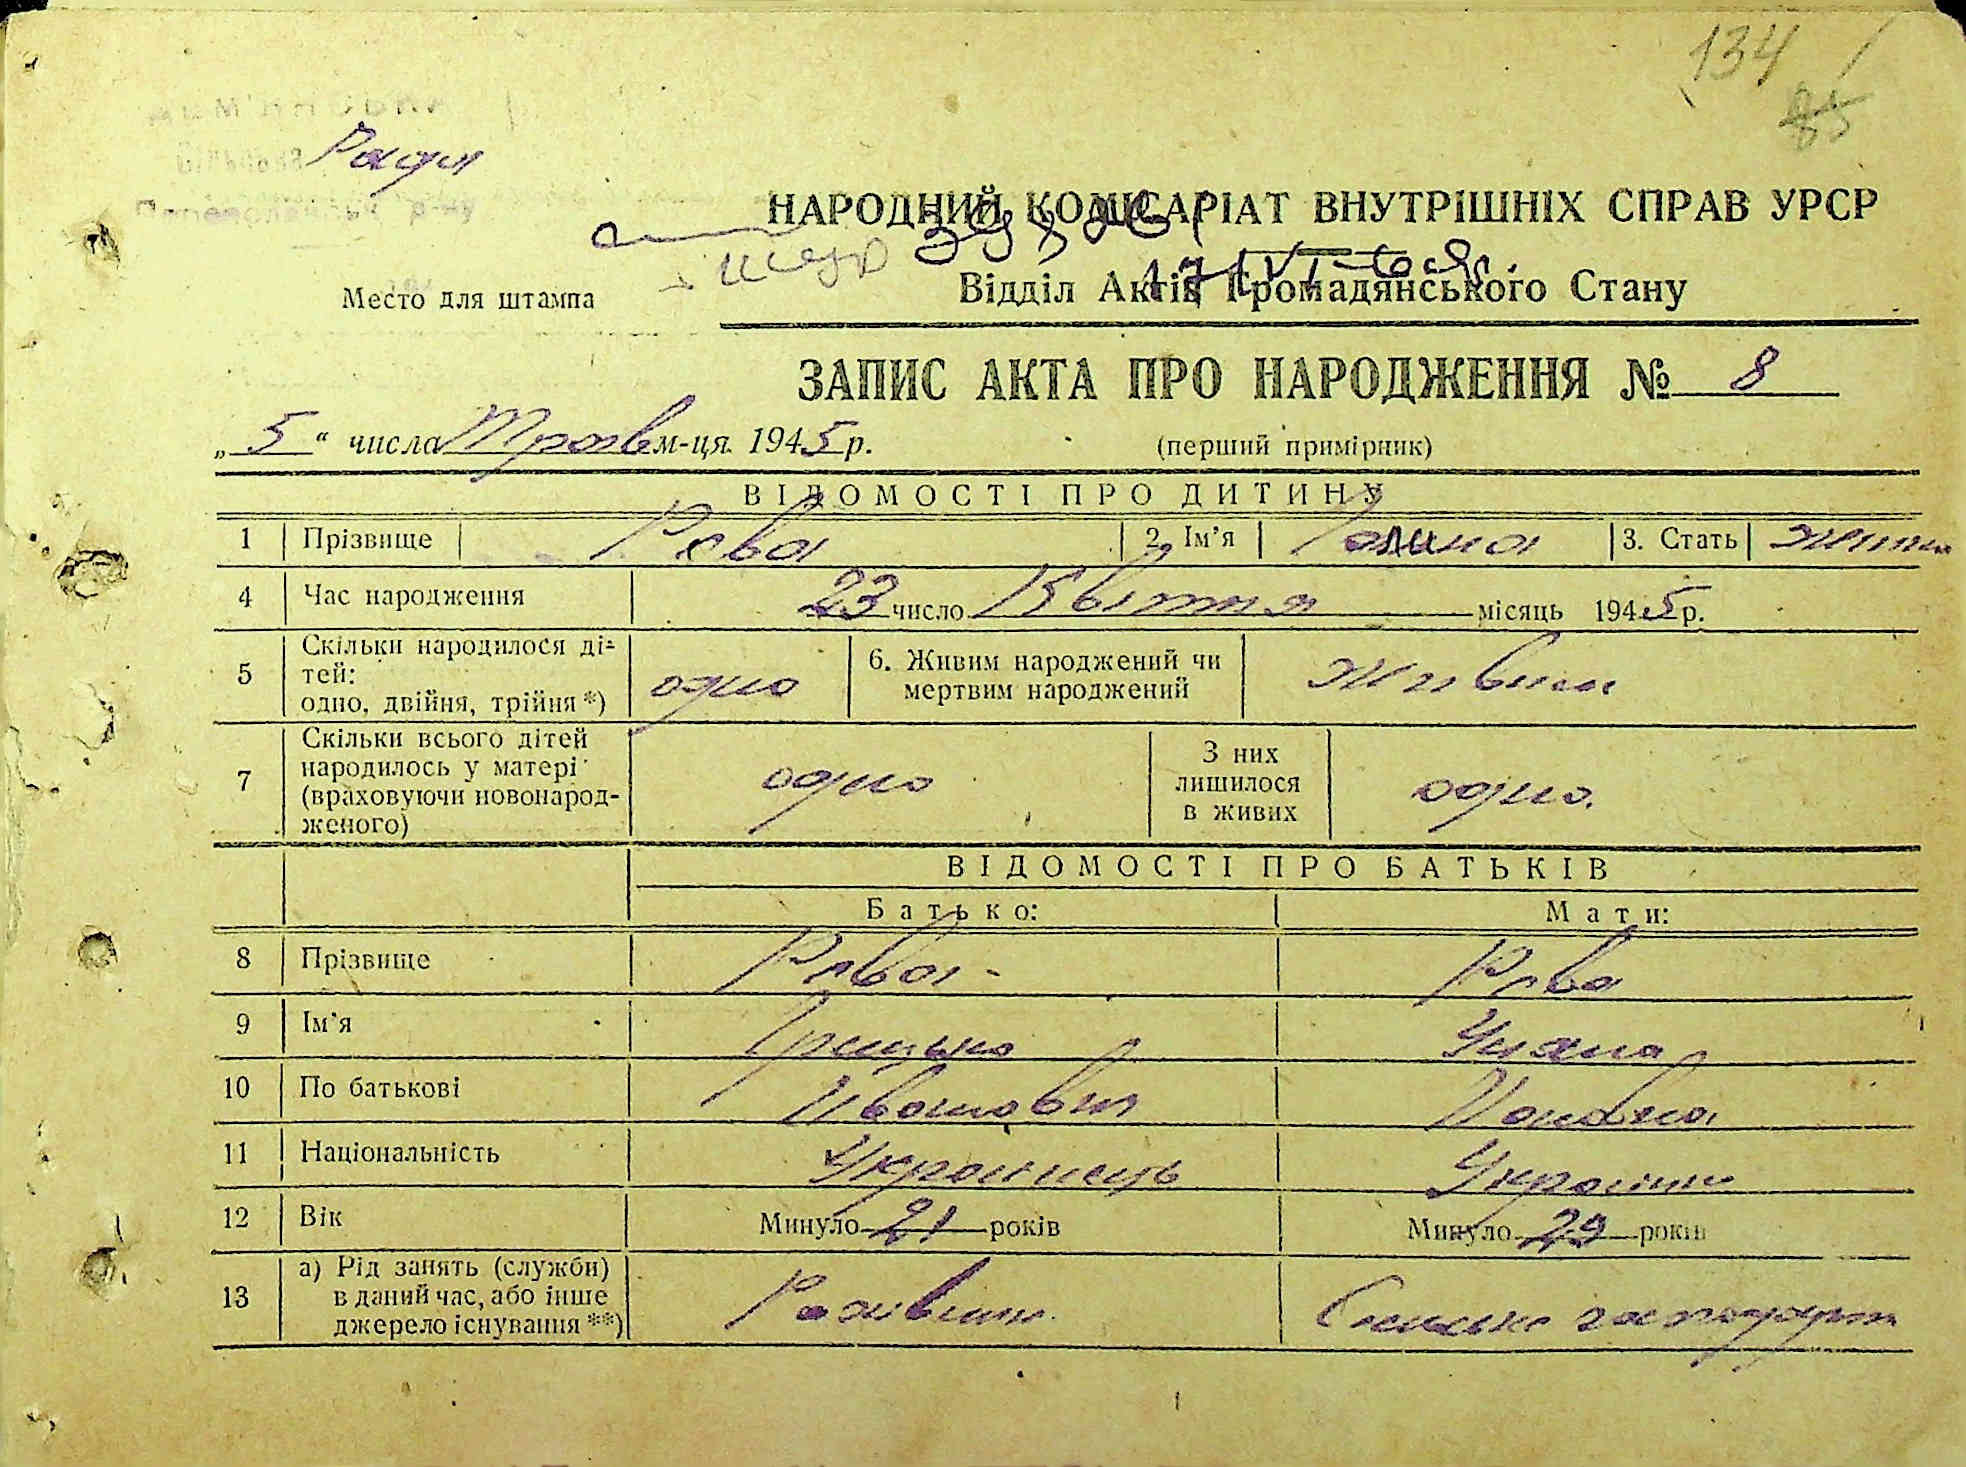 134
85
ДЕМ'ЯНІВКА
Ради
р-ну
НАРОДНИЙ КОМІСАРІАТ ВНУТРІШНІХ СПРАВ УРСР
Відділ Актів Громадянського Стану
Место для штампа
ЗАПИС АКТА ПРО НАРОДЖЕННЯ № 8
„5“ числа Трав м-ця 1945 р. (перший примірник)
ВІДОМОСТІ ПРО ДИТИНУ
1 Прізвище Рева 2. Ім'я Галина 3. Стать жіноч
4 Час народження 23 число Квітня місяць 1945 р.
5 Скільки народилося ді-
тей:
одно, двійня, трійня *) одно 6. Живим народжений чи
мертвим народжений Живим
7 Скільки всього дітей
народилось у матері
(враховуючи новонарод-
женого) одно З них
лишилося
в живих одно.
ВІДОМОСТІ ПРО БАТЬКІВ
Батько: Мати:
8 Прізвище Рева Рева
9 Ім'я Грицько Уляна
10 По батькові Іванович
11 Національність Українець Україн
12 Вік Минуло 21 років Минуло 29 років
13 а) Рід занять (служби)
в даний час, або інше
джерело існування **) Сільське господарст